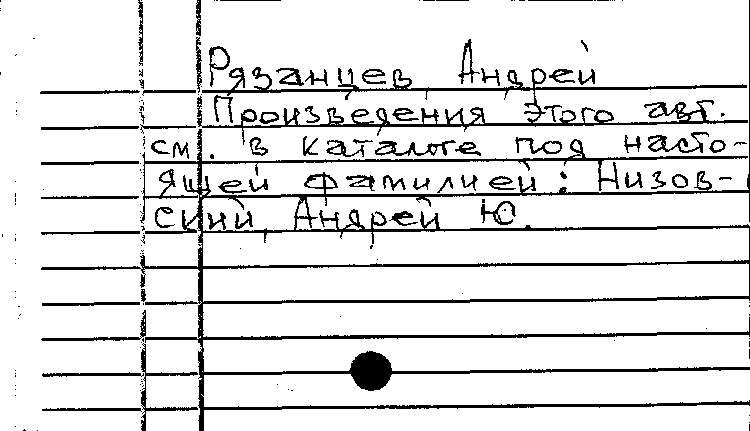 Рязанцев, Андрей
Произведения этого авт.
см. в каталоге под насто-
ящей фамилией: Низов-
ский, Андрей Ю.